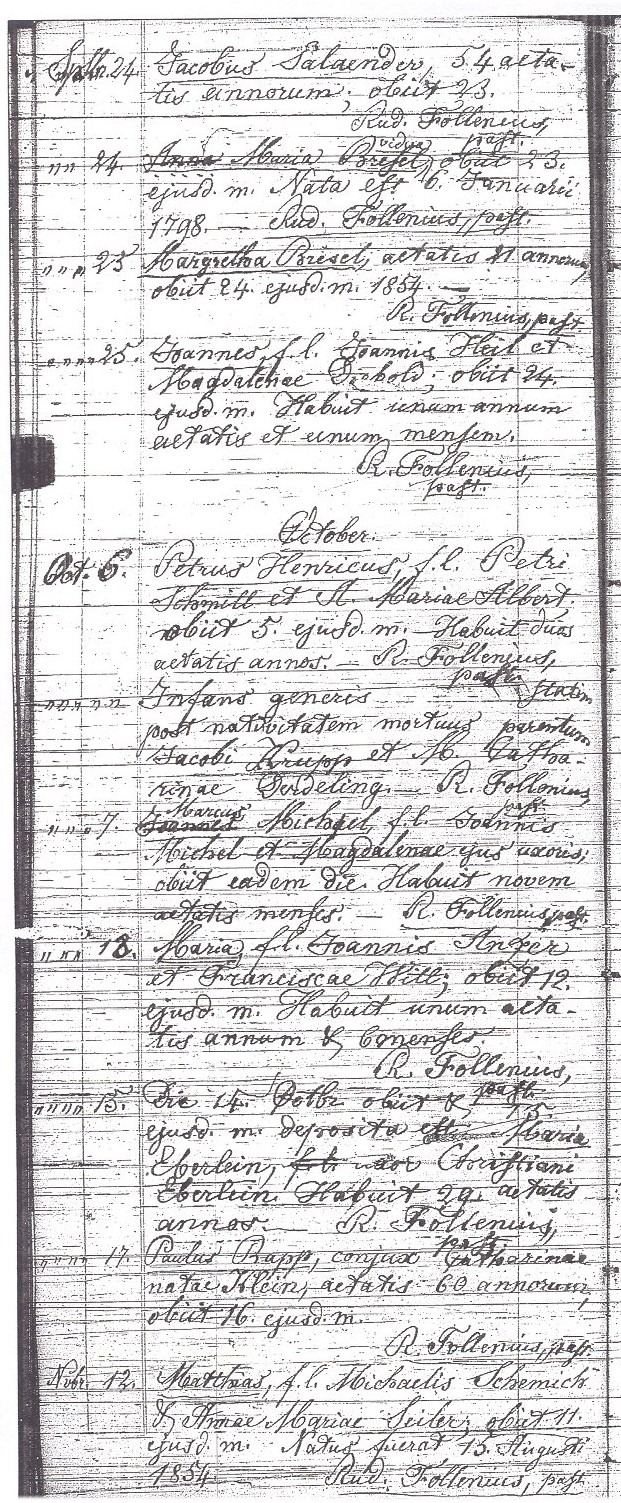 Septbr. 24. Jacobus Salaender, 54 aeta-
tis annorum, obiit 23.
Rud. Follenius,
past.
" " 24. Anna Maria Bresel, vidua, obiit 23.
ejusd. m. Nata est 6. Januarii
1798. — Rud. Follenius, past.
" " " 25 Margretha Bresel, aetatis 21 annorum,
obiit 24. ejusd. m. 1854. —
R. Follenius, past
" " " " 25. Joannes, f. l. Joannis Heil et
Magdalenae Diebold, obiit 24.
ejusd. m. Habuit unum annum
aetatis et unum mensem.
R. Follenius,
past.
October.
Oct. 6. Petrus Henricus, f. l. Petri
Schmitt et A. Mariae Albert,
obiit 5. ejusd. m. — Habuit duos
aetatis annos. — R. Follenius,
past.
" " " " " Infans generis statim
post nativitatem mortuus parentum
Jacobi Krupp et M. Catha-
rinae — R. Follenius,
past.
" " " 7. Joannes Marcus Michael, f. l. Joannis
Michel et Magdalenae ejus uxoris;
obiit eadem die. Habuit novem
aetatis menses. — R. Follenius, past.
" " " 13. Maria, f. l. Joannis
et Franciscae Witt; obiit 12.
ejusd. m. Habuit unum aeta-
tis annum & 6 menses
R. Follenius,
past.
" " " " 15. Die 14. Octbr obiit & 15.
ejusd. m. deposita est Maria
Eberlein, f. l. uxor Christiani
Eberlein. Habuit 29. aetatis
annos. — R. Follenius,
past.
" " " " 17. Paulus Rapp, conjux Catharinae
natae Klein, aetatis 60 annorum,
obiit 16. ejusd. m.
R. Follenius, past.
Nvbr. 12. Matthias, f. l. Michaelis Schemich
& Annae Mariae Seiler; obiit 11.
ejusd. m. Natus fuerat 15. Augusti
1854 — Rud. Follenius, past